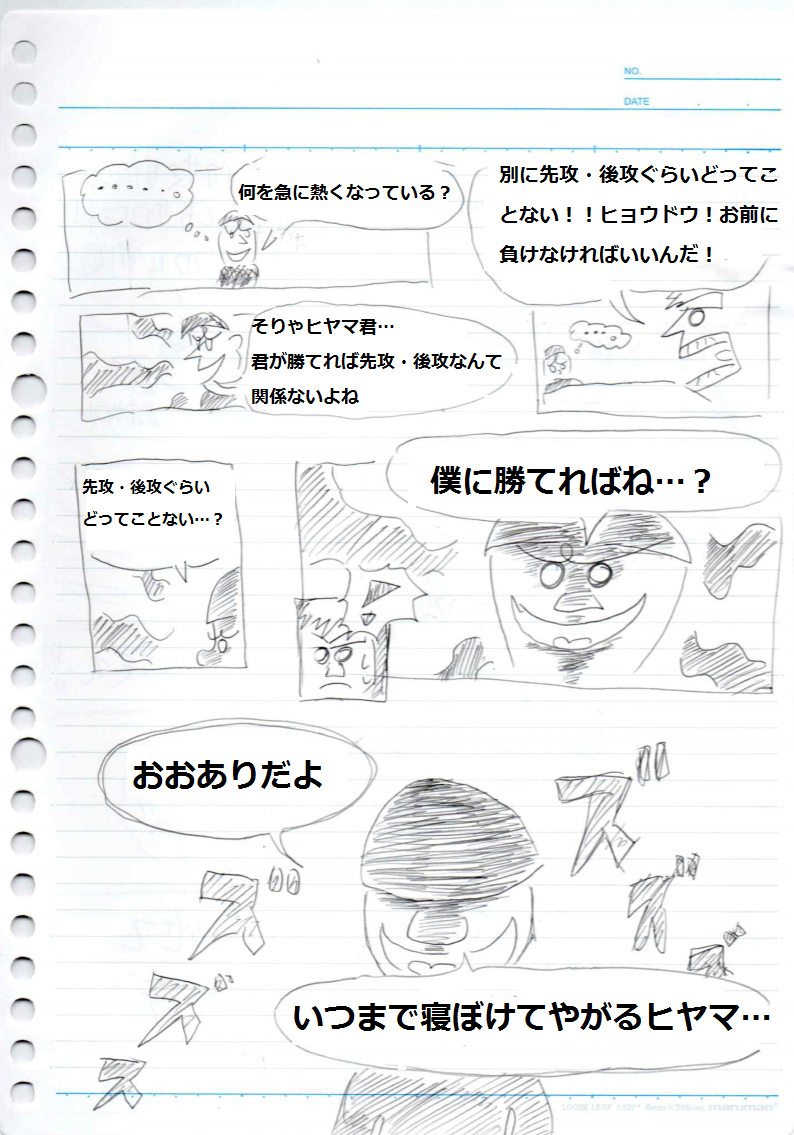 NO.
DATE
別に先攻・後攻ぐらいどってこ
とない！！ヒョウドウ！お前に
負けなければいいんだ！
何を急に熱くなっている？
・・・・・・
・・・・・
そりゃヒヤマ君…
君が勝てれば先攻・後攻なんて
関係ないよね
僕に勝てればね…？
先攻・後攻ぐらい
どってことない…？
おおありだよ
ズ
ズ
ズ
ズ
ズ
ズ
いつまで寝ぼけてやがるヒヤマ…
LOOSE LEAF
maruman